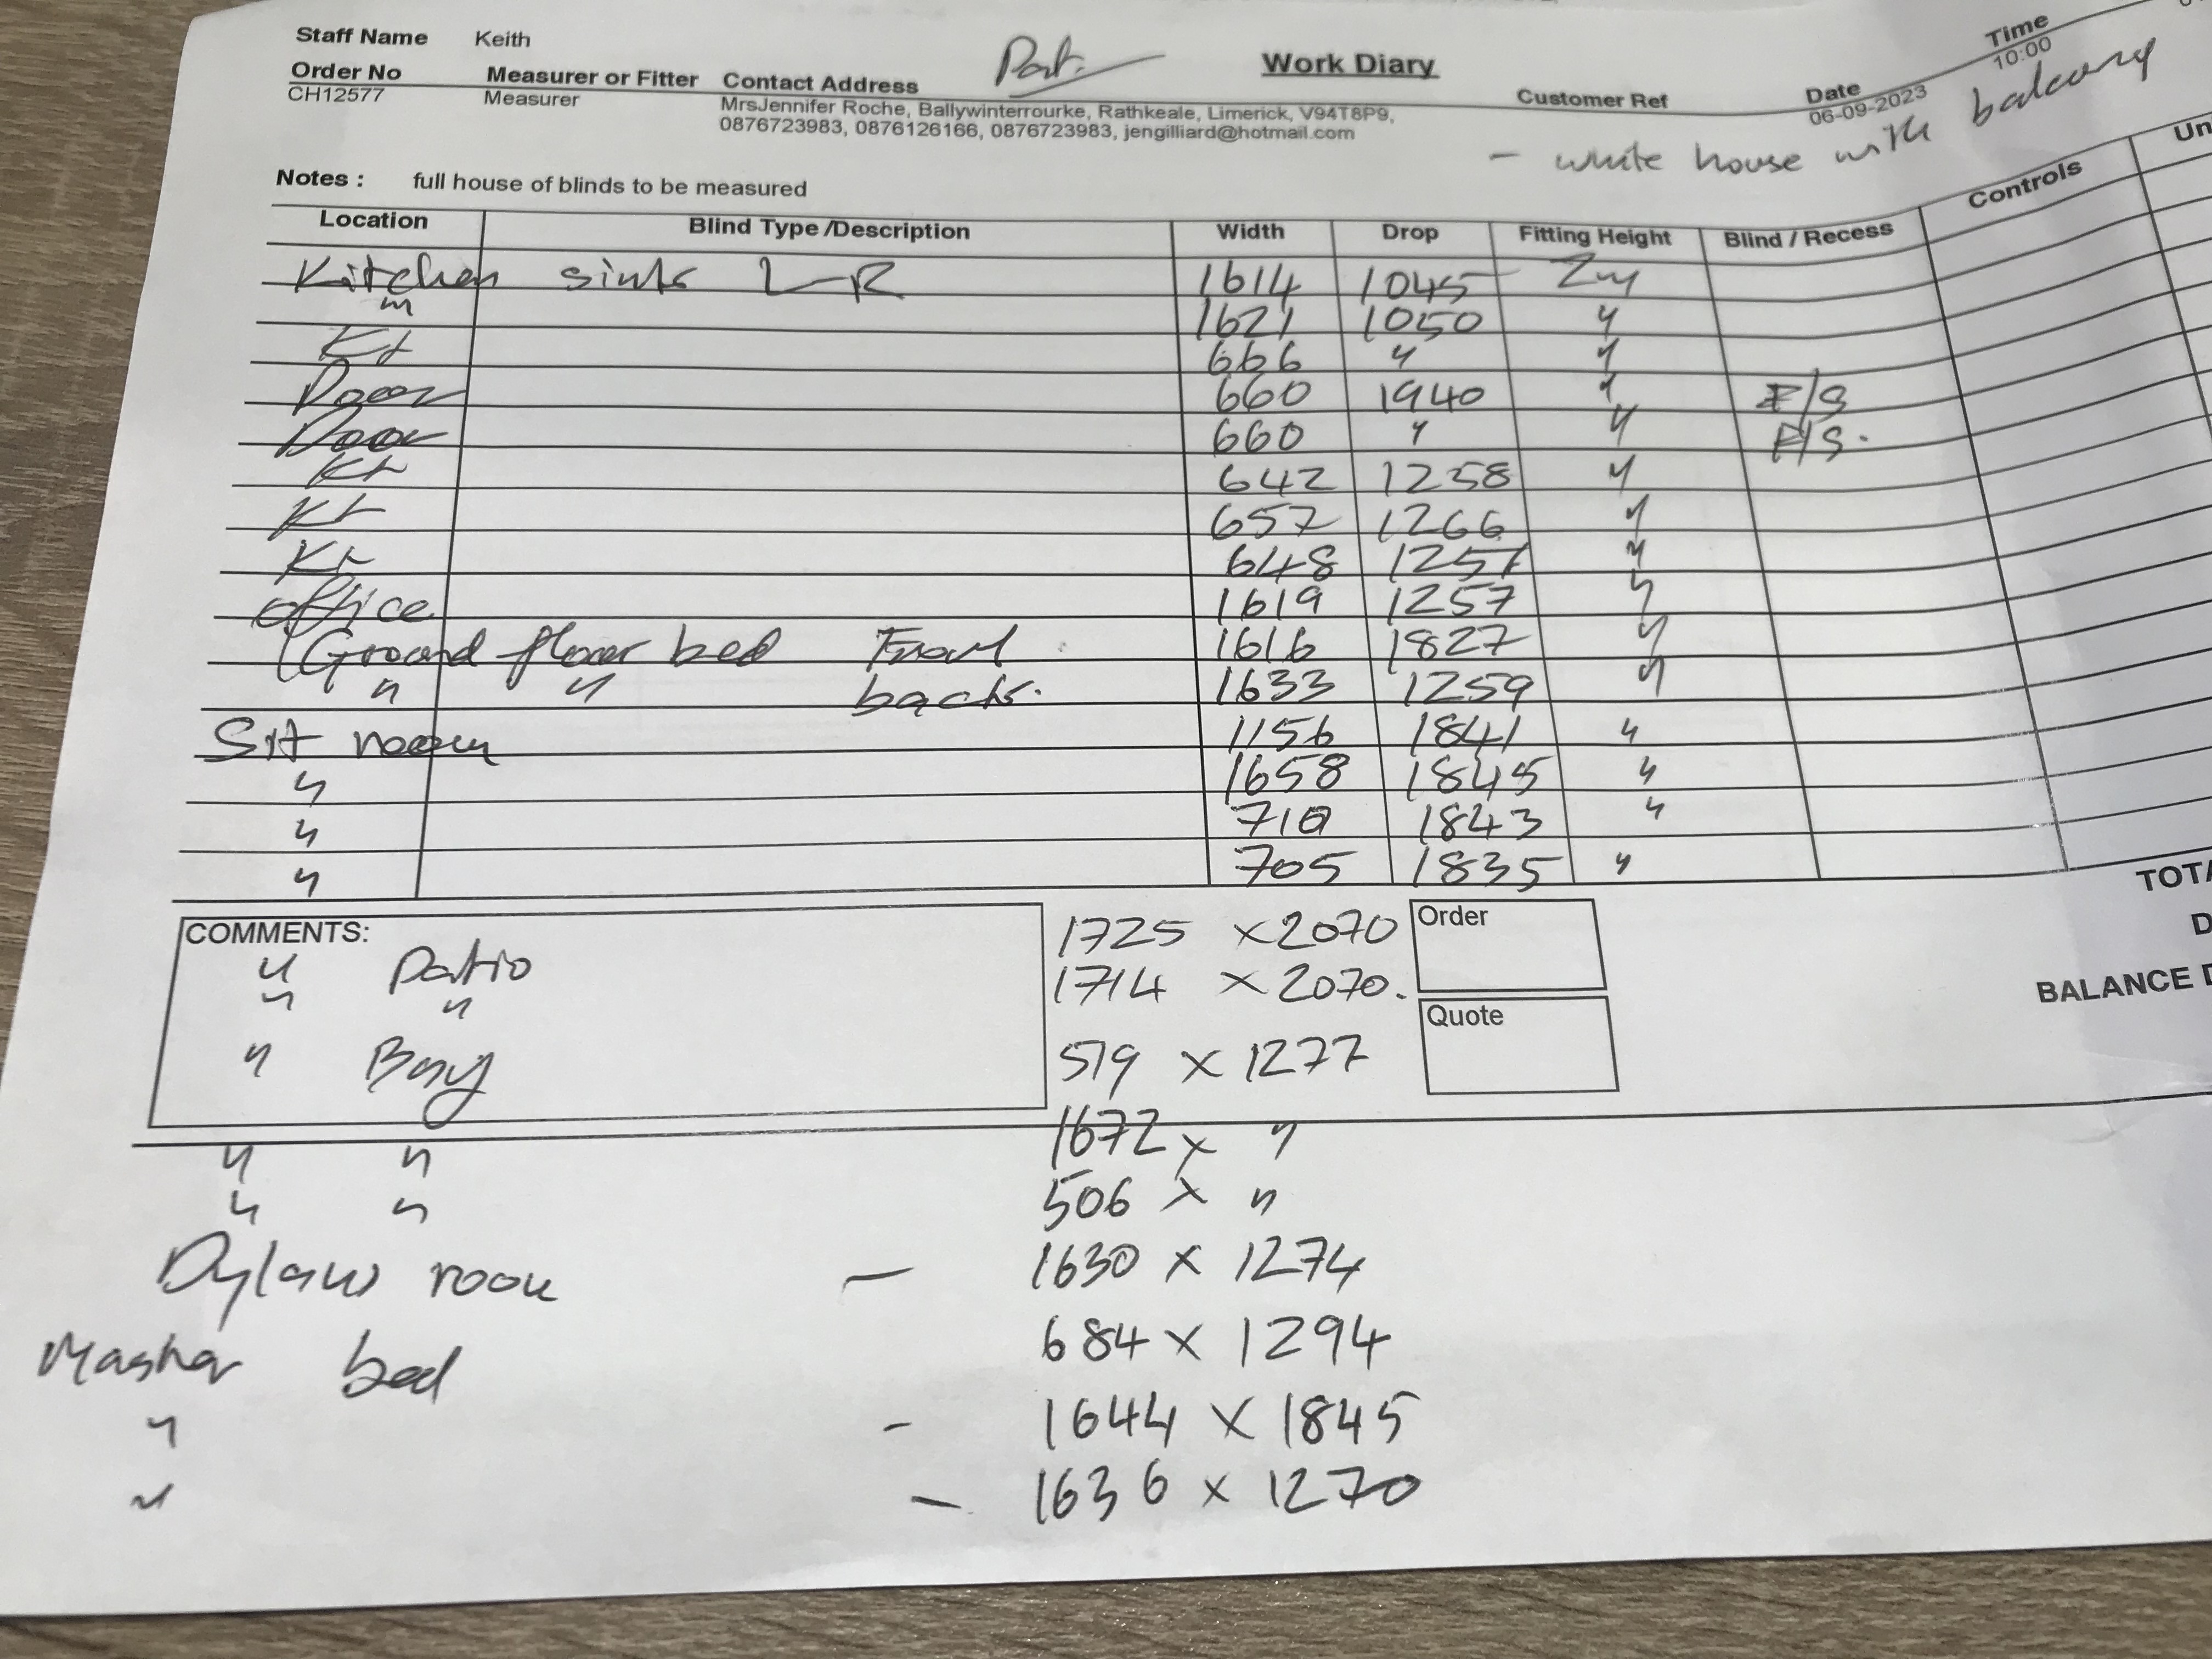 Staff Name Keith
Pat. Work Diary
Time
10:00
Order No Measurer or Fitter Contact Address Customer Ref Date
CH12577 Measurer MrsJennifer Roche, Ballywinterrourke, Rathkeale, Limerick, V94T8P9, 06-09-2023
0876723983, 0876126166, 0876723983, jengilliard@hotmail.com
- white house with balcony
Notes : full house of blinds to be measured
Location Blind Type /Description Width Drop Fitting Height Blind / Recess Controls Un
Kitchen sink L-R 1614 1045 2m
" 1621 1050 "
Kt 666 " "
Door 660 1940 " F/S
Door 660 " " F/S.
Kt 642 1258 "
Kt 657 1266 "
Kt 648 1257 "
office 1619 1257 "
Ground floor bed Front 1616 1827 "
" " back. 1633 1259 "
Sit room 1156 1841 "
" 1658 1845 "
" 710 1843 "
" 705 1835 "
TOTA
COMMENTS: 1725 x 2070 Order
" Patio
" " 1714 x 2070.
D
BALANCE D
Quote
" Bay 519 x 1277
" " 1672 x "
" " 506 x "
Dylans room - 1630 x 1274
684 x 1294
Master bed
" - 1644 x 1845
" - 1636 x 1270